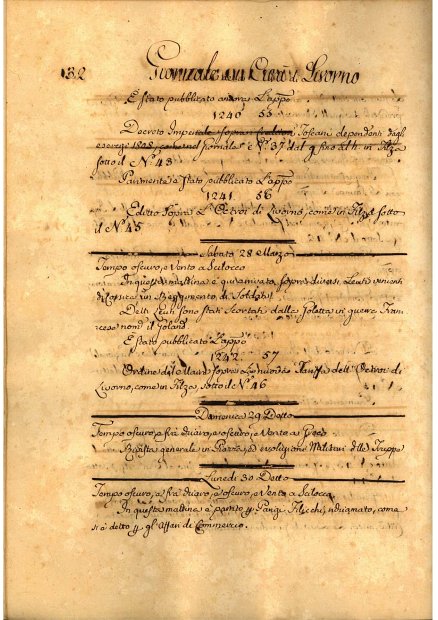 132 Giornale di Livorno
È stato pubblicato ancora l'appo
1240 55
Decreto Imperiale sopra Toscani dependenti dagl
esercizi 1808, Giornale N.º 37 dal in filza
sotto il N.º 43
Parimente è stato pubblicato l'appo
1241 56
Editto sopra l'Octroi di Livorno, come in Filza sotto
il N.º 45
Sabato 28 Marzo
Tempo oscuro, e Vento a Scilocco
In questa mattina è qui arrivato sopra diversi Leuti venienti
di Corsica un Reggimento di Soldati
Detti Leuti sono stati scortati dalla Goletta in guerra Fran
cese nom.
È stato pubblicato l'appo
1242 57
Ordine del Maire sopra la Tariffa dell'Octroi di
Livorno, come in Filza, sotto de N.º 46
Domenica 29 Detto
Tempo oscuro, e fra chiaro, e oscuro, e Vento a Greco
Rivista generale in Piazza, ed evoluzione Militari delle Truppe
Lunedì 30 Detto
Tempo oscuro, e fra chiaro, e oscuro, e Vento a Scilocco
In questa mattina è partito p Parigi Filicchi, come
si è detto p gl'Affari di Commercio.